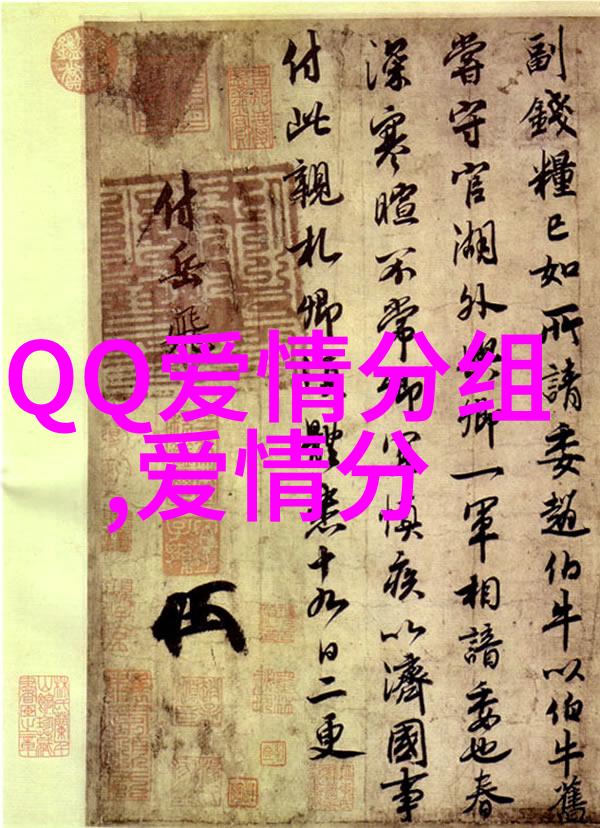 QQ爱情分组
,爱情分
副錢糧已如所請委趙伯牛以伯牛舊
嘗守官湖外與卿一軍相諳委也春
深寒暄不常卿宜慎疾以濟國事
付此親札卿體悉十九日二更
付岳飛